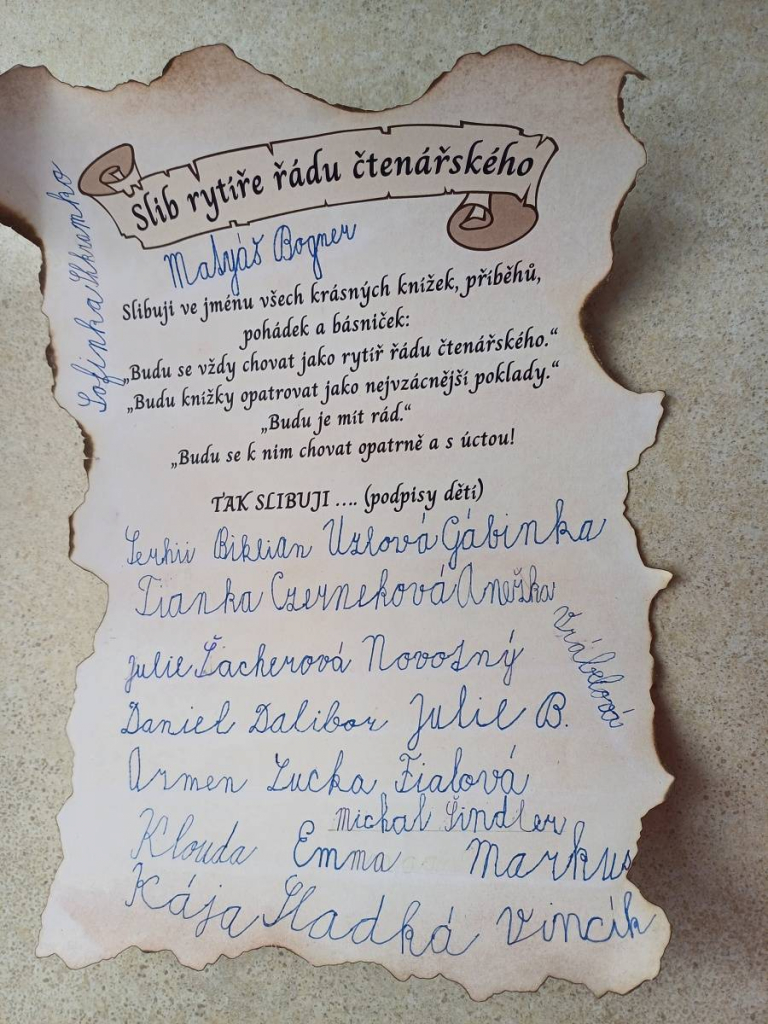 Slib rytíře řádu čtenářského
Matyáš Bogner
Sofinka Skhremko
Slibuji ve jménu všech krásných knížek, příběhů,
pohádek a básniček:
„Budu se vždy chovat jako rytíř řádu čtenářského.“
„Budu knížky opatrovat jako nejvzácnější poklady.“
„Budu je mít rád.“
„Budu se k nim chovat opatrně a s úctou!
TAK SLIBUJI .... (podpisy dětí)
Serhii Biklian Uzlová Gábinka
Tianka Czerneková Anežka
Vrábelová
Julie Šacherová Novotný
Daniel Dalibor Julie B.
Armen Lucka Fialová
Michal Šindler
Klouda Emma Markus
Kája Sladká Vincík